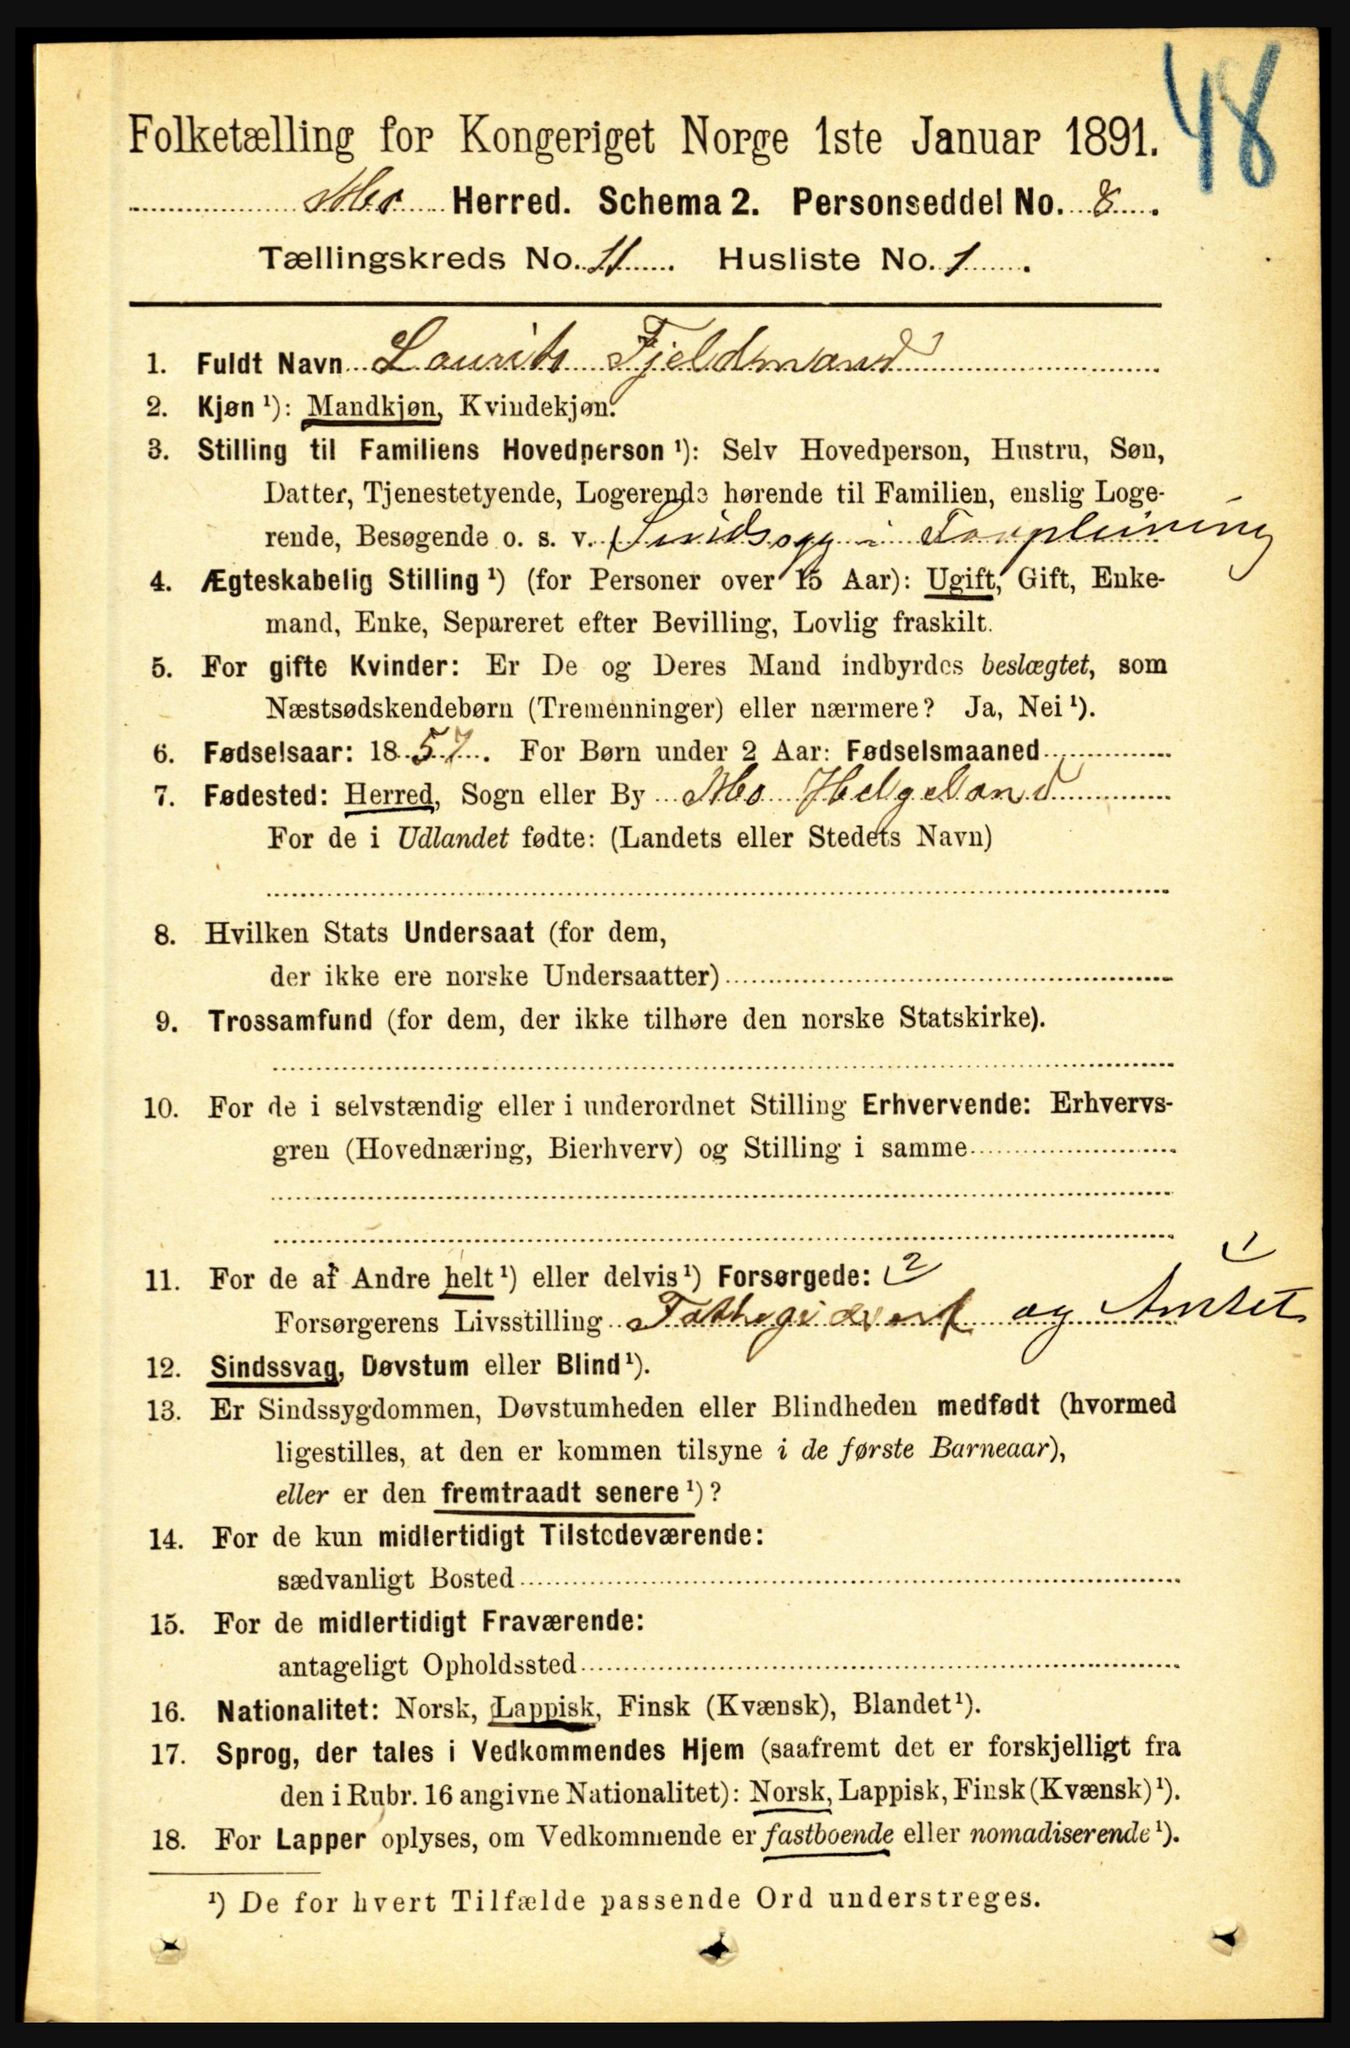 48
Folketælling for Kongeriget Norge 1ste Januar 1891.
Mo Herred. Schema 2. Personseddel No. 8.
Tællingskreds No. 11. Husliste No. 1.
1. Fuldt Navn Laurits Fjeldmand
2. Kjøn ¹): Mandkjøn, Kvindekjøn.
3. Stilling til Familiens Hovedperson ¹): Selv Hovedperson, Hustru, Søn,
Datter, Tjenestetyende, Logerende hørende til Familien, enslig Loge-
rende, Besøgende o. s. v. Sindssyg i Forpleining
4. Ægteskabelig Stilling ¹) (for Personer over 15 Aar): Ugift, Gift, Enke-
mand, Enke, Separeret efter Bevilling, Lovlig fraskilt.
5. For gifte Kvinder: Er De og Deres Mand indbyrdes beslægtet, som
Næstsødskendebørn (Tremenninger) eller nærmere? Ja, Nei ¹).
6. Fødselsaar: 1857. For Børn under 2 Aar: Fødselsmaaned
7. Fødested: Herred, Sogn eller By Mo Helgeland
For de i Udlandet fødte: (Landets eller Stedets Navn)
8. Hvilken Stats Undersaat (for dem,
der ikke ere norske Undersaatter)
9. Trossamfund (for dem, der ikke tilhøre den norske Statskirke).
10. For de i selvstændig eller i underordnet Stilling Erhvervende: Erhvervs-
gren (Hovednæring, Bierhverv) og Stilling i samme
11. For de af Andre helt ¹) eller delvis ¹) Forsørgede: 2 1
Forsørgerens Livsstilling og Amtet
12. Sindssvag, Døvstum eller Blind ¹).
13. Er Sindssygdommen, Døvstumheden eller Blindheden medfødt (hvormed
ligestilles, at den er kommen tilsyne i de første Barneaar),
eller er den fremtraadt senere ¹)?
14. For de kun midlertidigt Tilstedeværende:
sædvanligt Bosted
15. For de midlertidigt Fraværende:
antageligt Opholdssted
16. Nationalitet: Norsk, Lappisk, Finsk (Kvænsk), Blandet ¹).
17. Sprog, der tales i Vedkommendes Hjem (saafremt det er forskjelligt fra
den i Rubr. 16 angivne Nationalitet): Norsk, Lappisk, Finsk (Kvænsk) ¹).
18. For Lapper oplyses, om Vedkommende er fastboende eller nomadiserende ¹).
¹) De for hvert Tilfælde passende Ord understreges.